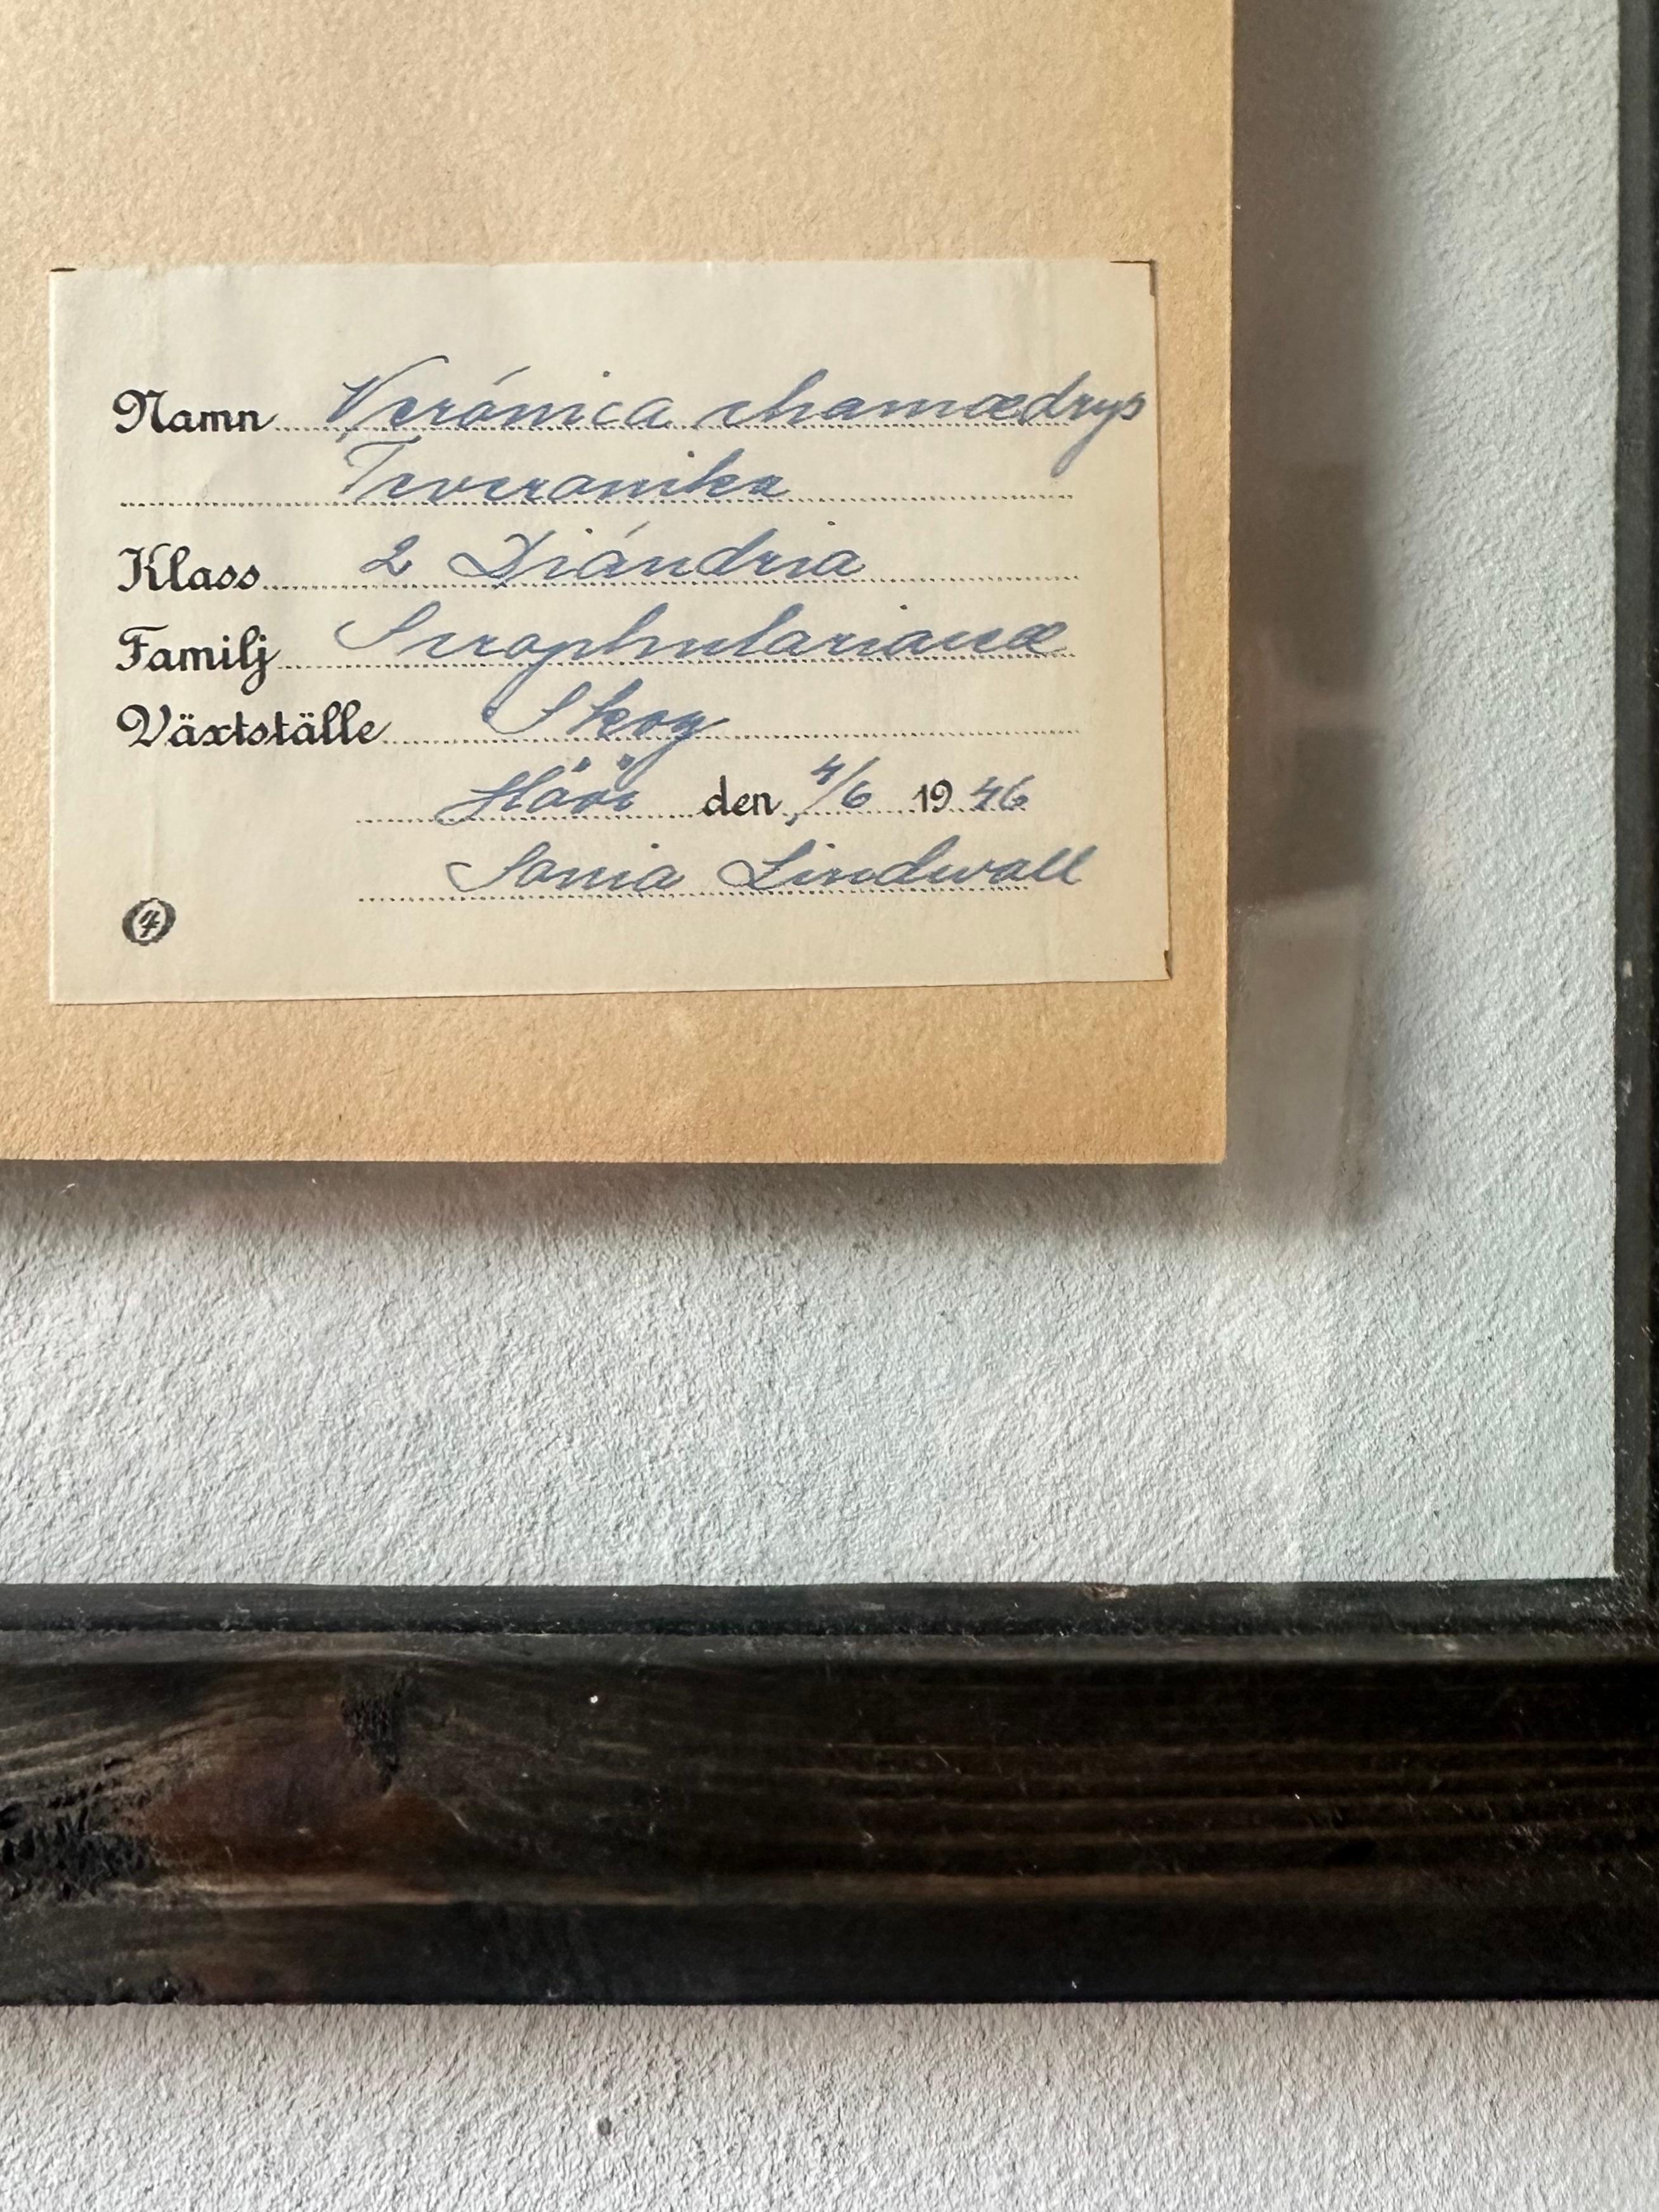 Namn Verónica chamædrys
Teveronika
Klass 2 Diándria
Familj Scrophulariaceæ
Växtställe Skog
Höör den 4/6 1946
Sonia Lindwall
4